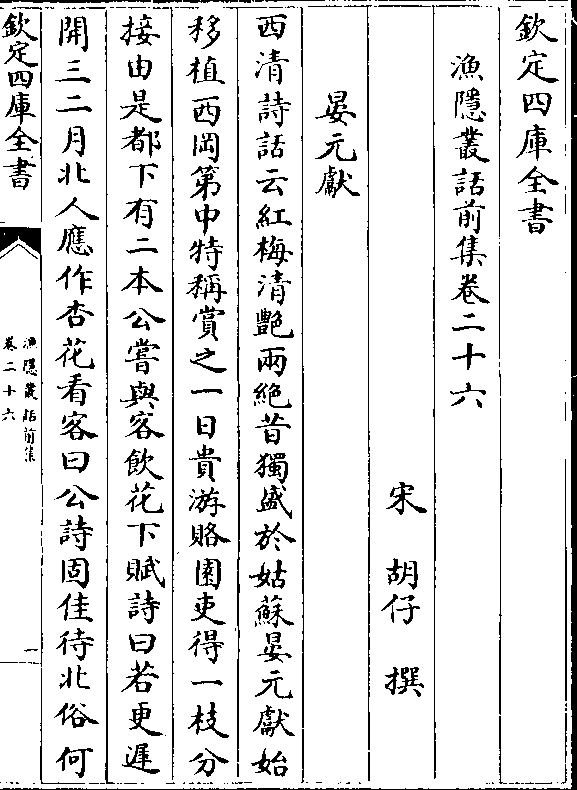 欽定四庫全書
漁隱叢話前集卷二十六
宋 胡仔 撰
晏元獻
西清詩話云紅梅清艷兩絶昔獨盛於姑蘇晏元獻始
移植西岡第中特稱賞之一日貴游賂園吏得一枝分
接由是都下有二本公嘗與客飲花下賦詩曰若更遲
開三二月北人應作杏花看客曰公詩固佳待北俗何
欽定四庫全書
漁隱叢話前集
卷二十六
一